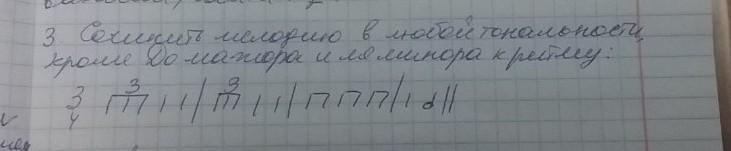 3. Сочинить мелодию в любой тональности,
кроме До мажора и ля минора к ритму:
3
4
3
3